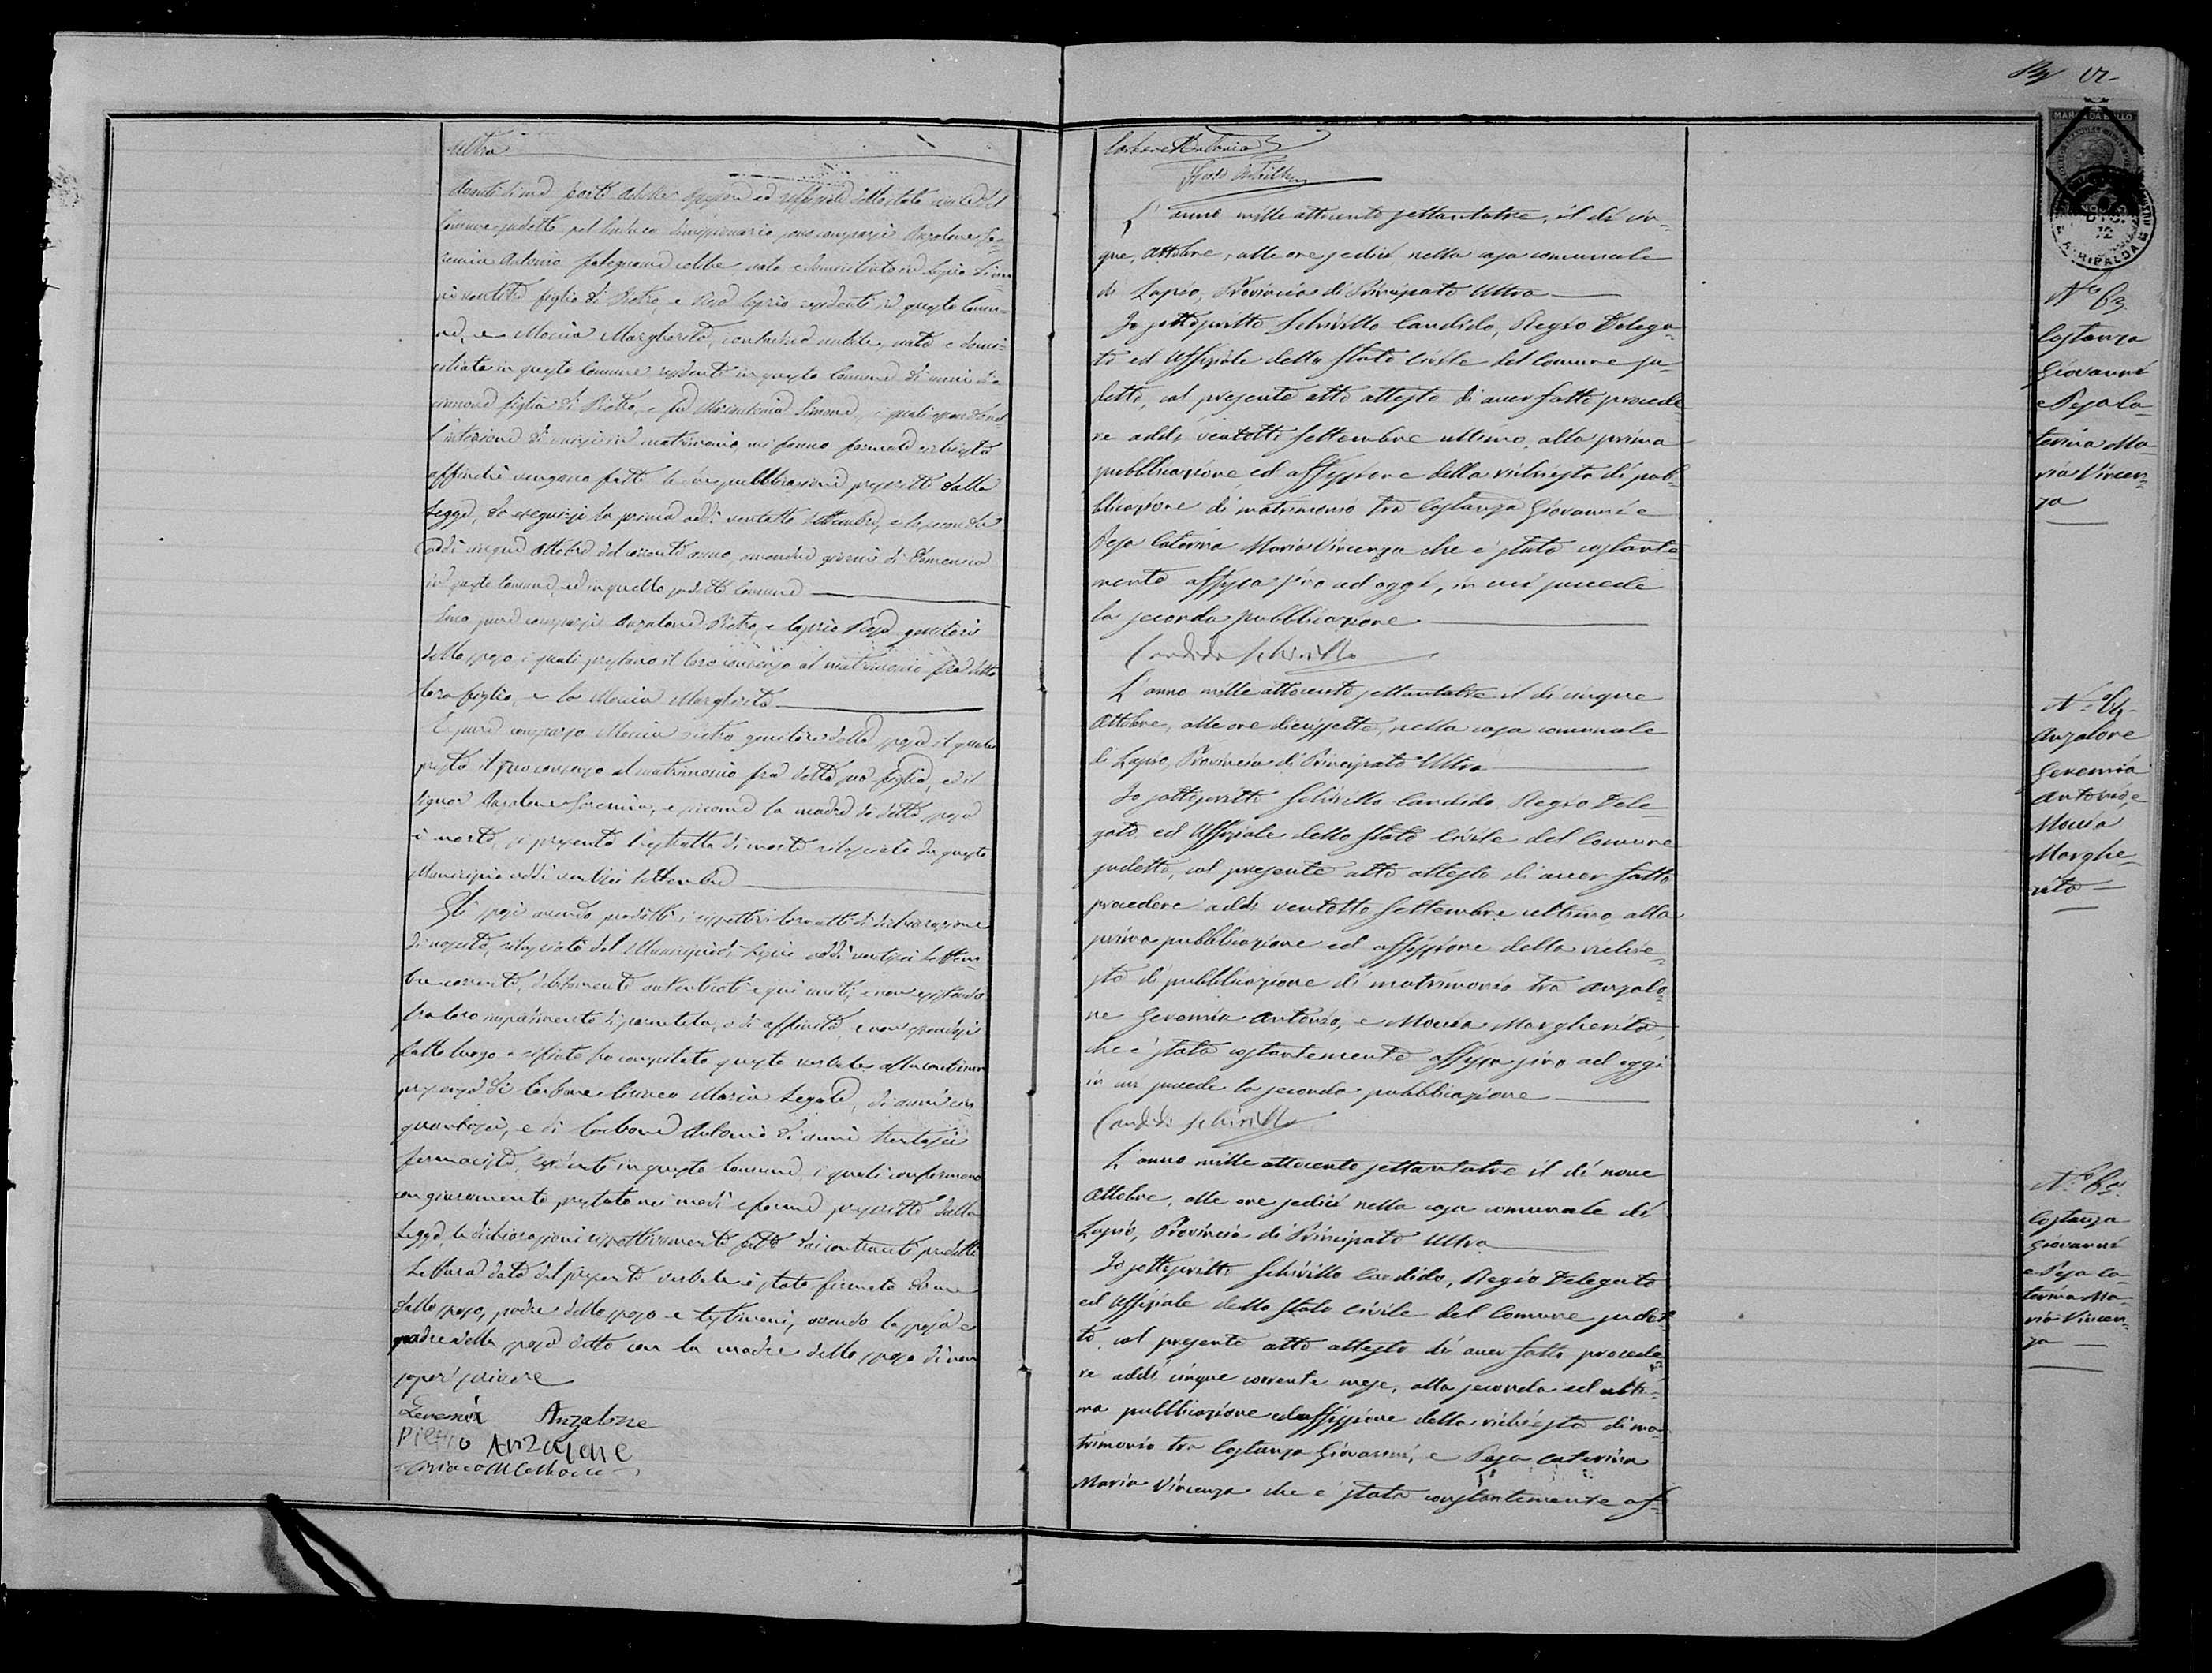 Ultra
Comune sudetto, pel Sindaco dimissionario, sono comparsi Anzalone Ge-
remia Antonio falegname celibe nato e domiciliato in Lapio di an-
ni ventitre figlio di Pietro, e Rosa Caprio residenti in questo Comu-
ne, e Moccia Margherita, contadina nubile, nata e domi-
ciliata in questo Comune residente in questo Comune di anni di-
cinnove figlia di Pietro, e fu Simone, i quali
l'intenzione di unirsi in matrimonio, mi fanno formale richiesta
affinchè vengano fatte le due pubblicazioni prescritte dalla
Legge, da eseguirsi la prima addì ventotto Settembre, e la seconda
addì cinque Ottobre del corrente anno, amendue giorni di Domenica
in questo Comune, ed in quello sudetto Comune
Sono pure comparsi Anzalone Pietro, e Caprio Rosa genitori
dello sposo i quali prestano il loro consenso al matrimonio fra detto
loro figlio, e la Moccia Margherita
È pure comparso Moccia Pietro genitore della sposa il quale
presta il suo consenso al matrimonio fra detta sua figlia, ed il
signor Anzalone Geremia, e siccome la madre di detta sposa
è morta, si presenta l'estratto di morte rilasciato da questo
Municipio addì ventisei Settembre
Gli sposi avendo prodotti i rispettivi loro atti di dichiarazione
di nascita, rilasciati dal Municipio di Lapio addì ventisei Settem-
bre corrente, debitamente autenticati e qui uniti, e non esistendo
fra loro impedimento di parentela, o di affinità, e non essendosi
fatto luogo a rifiuto ho compilato questo verbale alla continua
presenza di Carbone Ciriaco Maria Legale, di anni cin
quantasei, e di Carbone Antonio di anni trentasei
farmacista, residenti in questo Comune, i quali confermano
con giuramento prestato nei modi e forme prescritte dalla
Legge, le dichiarazioni rispettivamente fatte dai contraenti predetti
Lettura data del presente verbale è stato firmato da me
dallo sposo, padre dello sposo e testimoni, avendo la sposa e
padre della sposa detto con la madre dello sposo di non
saper scrivere
Geremia Anzalone
Pietro Anzalone
Ciriaco M Carbone
Carbone Antonio
L'anno mille ottocento settantatre, il dì cin-
que, Ottobre, alle ore sedici nella casa comunale
di Lapio, Provincia di Principato Ultra
Io sottoscritto Schirillo Candido, Regio Delega-
to ed Uffiziale dello Stato Civile del Comune su-
detto, col presente atto attesto di aver fatto procede
re addì ventotto Settembre ultimo alla prima
pubblicazione ed affissione della richiesta di pub-
blicazione di matrimonio tra Costanza Giovanni e
Pesa Caterina Maria Vincenza che è stata costante-
mente affissa sino ad oggi, in cui succede
la seconda pubblicazione
Candido Schirillo
L'anno mille ottocento settantatre il dì cinque
Ottobre, alle ore diecissette, nella casa comunale
di Lapio, Provincia di Principato Ultra
Io sottoscritto Schirillo Candido Regio Dele-
gato ed Uffiziale dello Stato Civile del Comune
sudetto, col presente atto attesto di aver fatto
procedere addì ventotto Settembre ultimo, alla
prima pubblicazione ed affissione della richie-
sta di pubblicazione di matrimonio tra Anzalo-
ne Geremia Antonio, e Moccia Margherita,
che è stata costantemente affissa sino ad oggi
in cui succede la seconda pubblicazione
Candido Schirillo
L'anno mille ottocento settantatre il dì nove
Ottobre, alle ore sedici nella casa comunale di
Lapio, Provincia di Principato Ultra
Io sottoscritto Schirillo Candido, Regio Delegato
ed Uffiziale dello Stato Civile del Comune sudet-
to, col presente atto attesto di aver fatto procede-
re addì cinque corrente mese, alla seconda ed ulti-
ma pubblicazione ed affissione della richiesta di ma-
trimonio tra Costanza Giovanni, e Pesa Caterina
Maria Vincenza che è stata constantemente af-
MARCA DA BOLLO
12
ATRIPALDA
N° 63
Costanza
Giovanni
e Pesa Ca-
terina Ma-
ria Vincen-
za
N° 64
Anzalone
Geremia
Antonio, e
Moccia
Marghe-
rita
N° 65
Costanza
Giovanni
e Pesa Ca-
terina Ma-
ria Vincen-
za